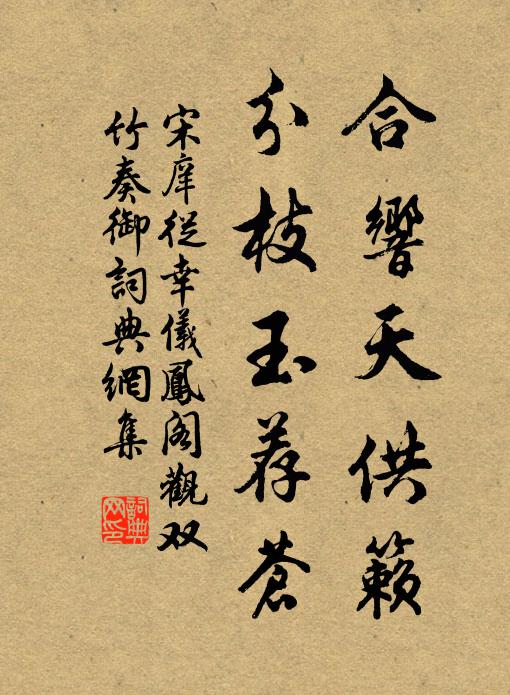 合響天供籟
分枝玉荐蒼
宋庠從幸儀鳳阁觀双
竹奏御詞典網集
詞典网印